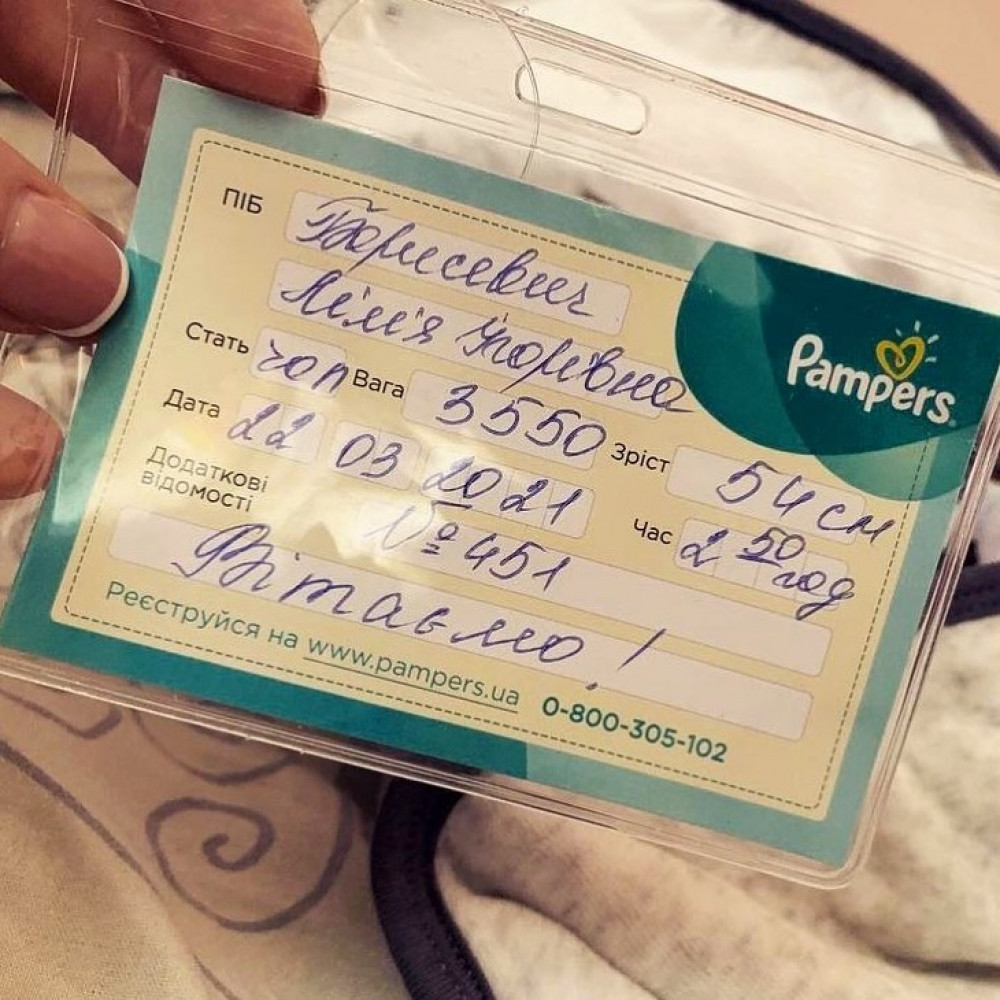 ПІБ Борисевич
Лілія Ігорівна
Pampers
Стать чол Вага 3550 Зріст 54 см
Дата 22 03 2021 Час 2 50 год
Додаткові
відомості
№ 451
Вітаємо!
Реєструйся на www.pampers.ua 0-800-305-102